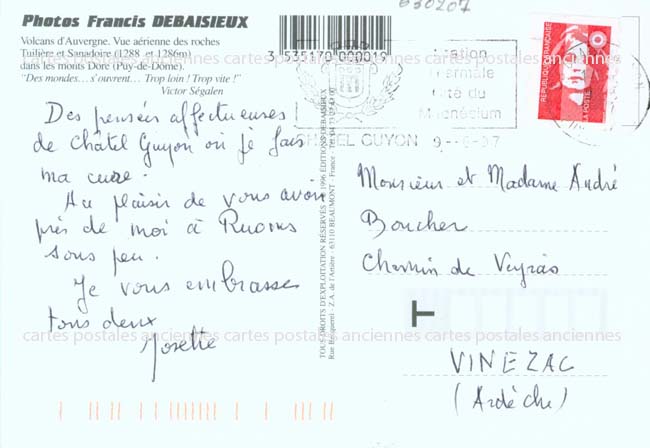 630207
Photos Francis DEBAISIEUX
Volcans d'Auvergne. Vue aérienne des roches
Tuilière et Sanadoire (1288 et 1286m)
dans les monts Dore (Puy-de-Dôme).
"Des mondes... s'ouvrent... Trop loin ! Trop vite !"
Victor Ségalen
3 535170 000019
Station
Thermale
Cité du
Magnésium
CHATEL GUYON
REPUBLIQUE FRANÇAISE
LA POSTE
Des pensées affectueuses
de Châtel Guyon où je fais
ma cure.
Au plaisir de vous avoir
près de moi à Ruoms
sous peu.
Je vous embrasse
tous deux
Josette
TOUS DROITS D'EXPLOITATION RÉSERVÉS - © 1996 EDITIONS DEBAISIEUX
63110 BEAUMONT - France
Monsieur et Madame André
Boucher
Chemin de Veyras
T
VINEZAC
(Ardèche)
cartes postales anciennes cartes postales anciennes cartes postales anciennes